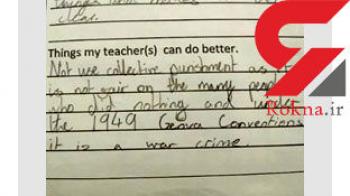 clear.
Things my teacher(s) can do better.
Not use collective punishment as it
is not fair on the many people
who did nothing and under
the 1949 Geneva Conventions
it is a war crime.
Rokna.ir